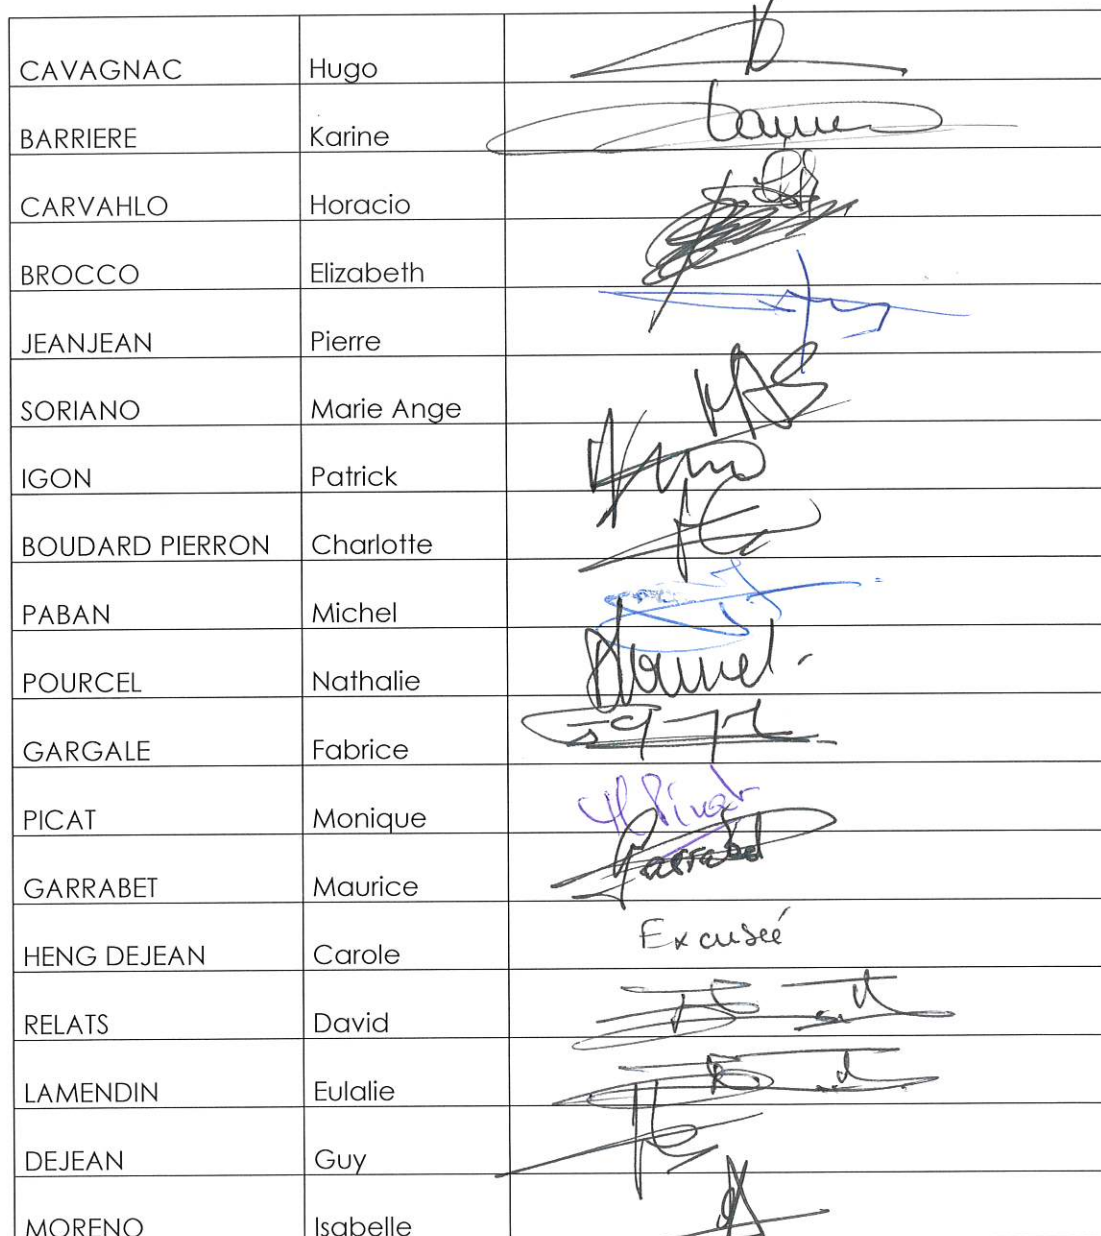 CAVAGNAC Hugo
BARRIERE Karine
CARVAHLO Horacio
BROCCO Elizabeth
JEANJEAN Pierre
SORIANO Marie Ange MAS
IGON Patrick
BOUDARD PIERRON Charlotte
PABAN Michel
POURCEL Nathalie
GARGALE Fabrice
PICAT Monique
GARRABET Maurice
HENG DEJEAN Carole Excusée
RELATS David
LAMENDIN Eulalie
DEJEAN Guy
MORENO Isabelle